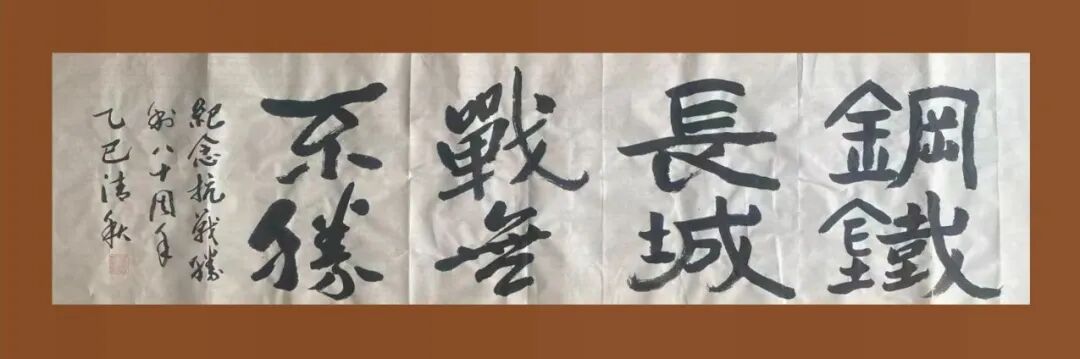 鋼鐵
長城
戰無
不勝
紀念抗戰勝
利八十周年
乙巳清秋